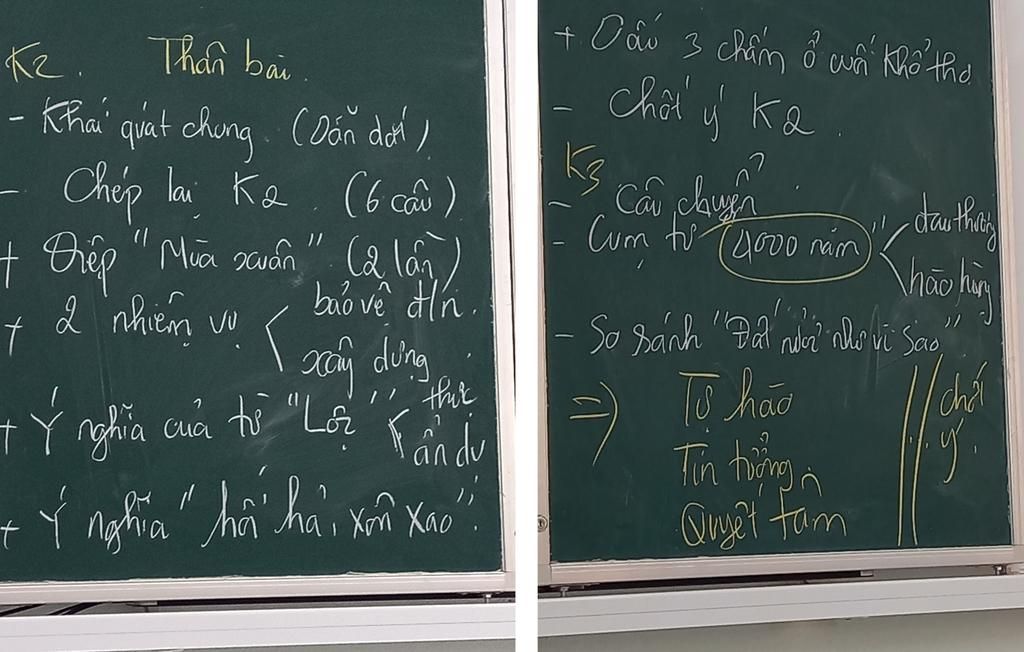 K2. Thân bài.
- Khái quát chung. (Dẫn dắt)
- Chép lại K2. (6 câu)
+ Điệp "Mùa xuân" (2 lần)
+ 2 nhiệm vụ < bảo vệ đ/n.
xây dựng.
+ Ý nghĩa của từ "Lộc" < thực
ẩn dụ
+ Ý nghĩa "hối hả, xôn xao".
+ Dấu 3 chấm ở cuối khổ thơ
- Chốt ý K2.
K3
- Câu chuyển.
- Cụm từ "4000 năm" < đau thương
hào hùng
- So sánh "Đất nước như vì sao"
=> Tự hào
Tin tưởng
Quyết tâm
chốt ý.